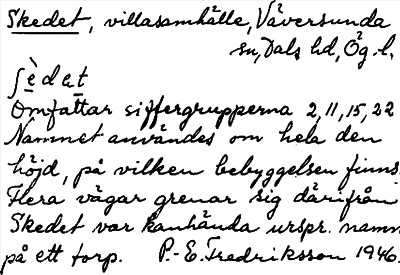 Skedet, villasamhälle, Väversunda
sn, Dals hd, Ög. l.
ʃèdet
Omfattar siffergrupperna 2, 11, 15, 22
Namnet användes om hela den
höjd, på vilken bebyggelsen finns.
Flera vägar grenar sig därifrån
Skedet var kanhända urspr. namn
på ett torp. P.-E. Fredriksson 1946.